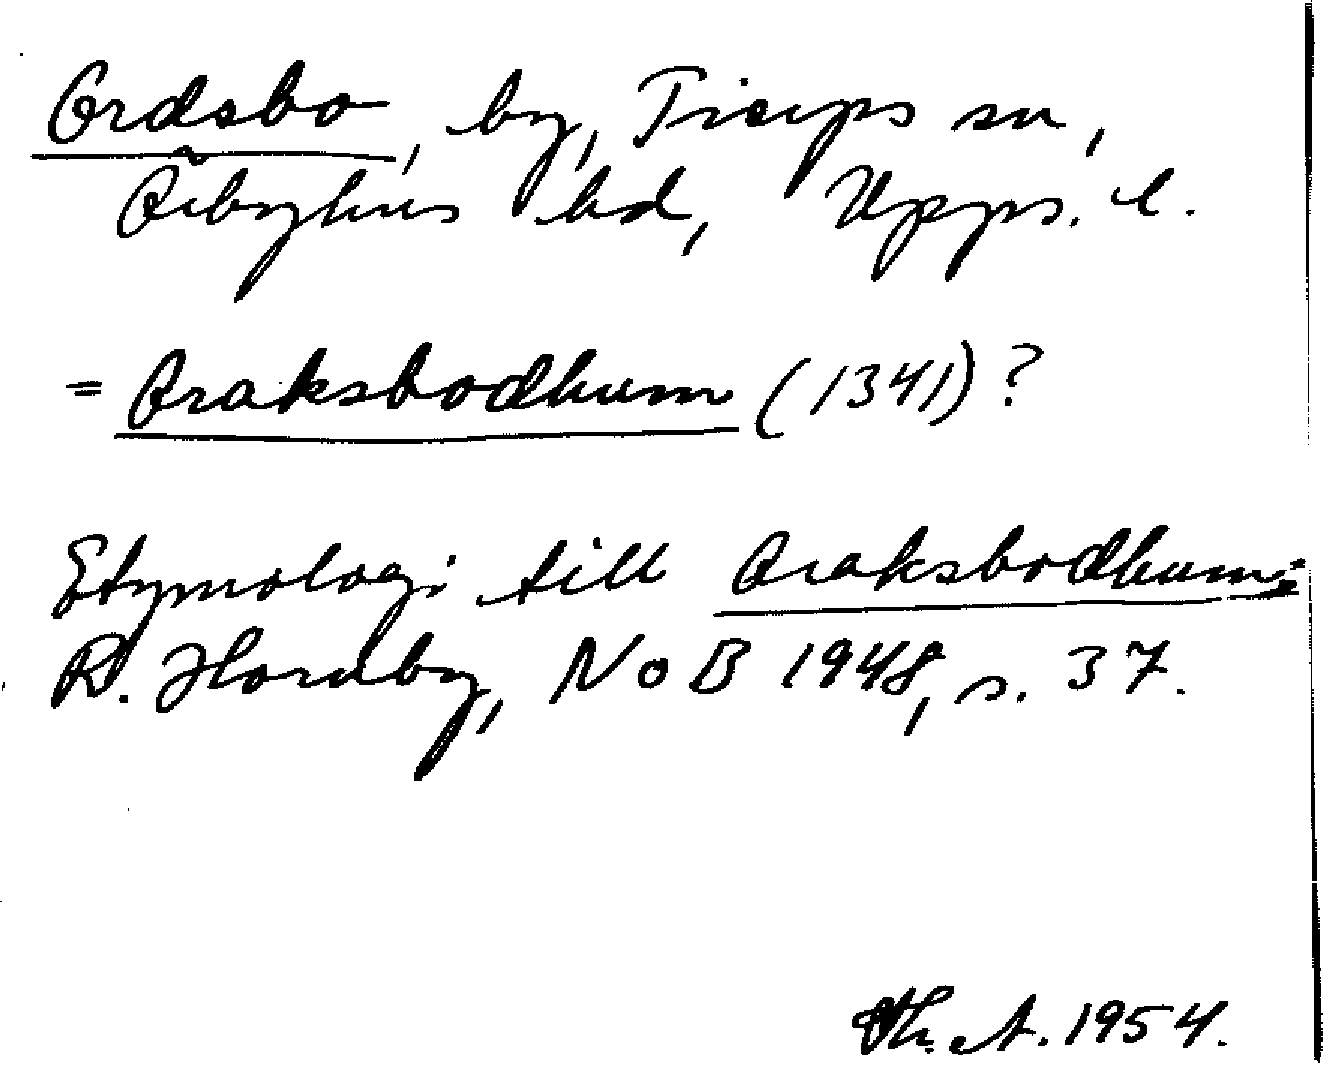 Ordsbo, by, Tierps sn,
Örbyhus hd, Upps. l.
= Oraksbodhum (1341)?
Etymologi till Oraksbodhum:
R. Hornby, NoB 1948, s. 37.
Th. A. 1954.